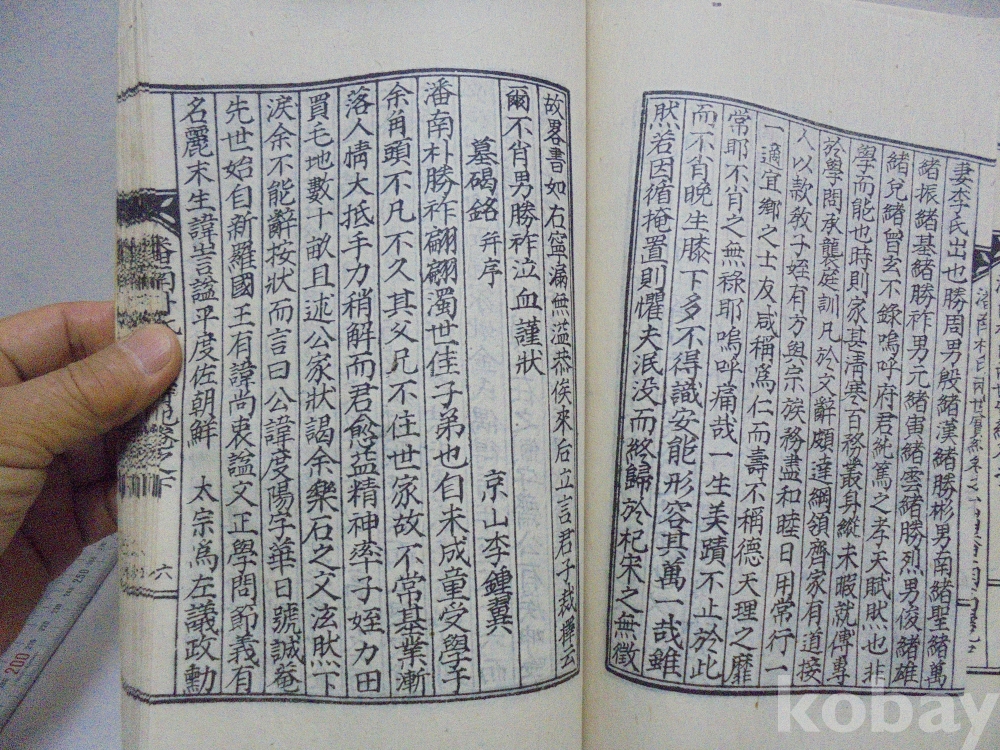 妻李氏出也勝周男殷緖漢緖勝彬男南緖聖緖萬
緖振緖基緖勝祚男元緖寅緖雲緖勝烈男俊緖雄
緖兒緖曾玄不錄嗚呼府君純篤之孝天賦然也非
學而能也時則家甚淸寒百務叢身縱未暇就傅專
於學問承襲庭訓凡於文辭頗達綱領齊家有道接
人以款敎子姪有方與宗族務盡和睦日用常行一
一適宜鄕之士友咸稱爲仁而壽不稱德天理之靡
常耶不肖之無祿耶嗚呼痛哉一生美蹟不止於此
而不肖晚生膝下多不得識安能形容其萬一哉雖
然若因循掩置則懼夫泯没而終歸於杞宋之無徵
故畧書如右寧漏無溢恭俟來后立言君子裁擇云
爾不肖男勝祚泣血謹狀
墓碣銘 幷序
京山李鍾翼
潘南朴勝祚翩翩濁世佳子弟也自未成童受學于
余角頭不凡不久其父兄不住世家故不常基業漸
落人情大抵手力稍解而君愈益精神率子姪力田
買毛地數十畝且述公家狀謁余樂石之文泫然下
淚余不能辭按狀而言曰公諱度陽字華日號誠菴
先世始自新羅國王有諱尚衷謚文正學問節義有
名麗末生諱訔謚平度佐朝鮮 太宗爲左議政勳
六
200
250
kobay